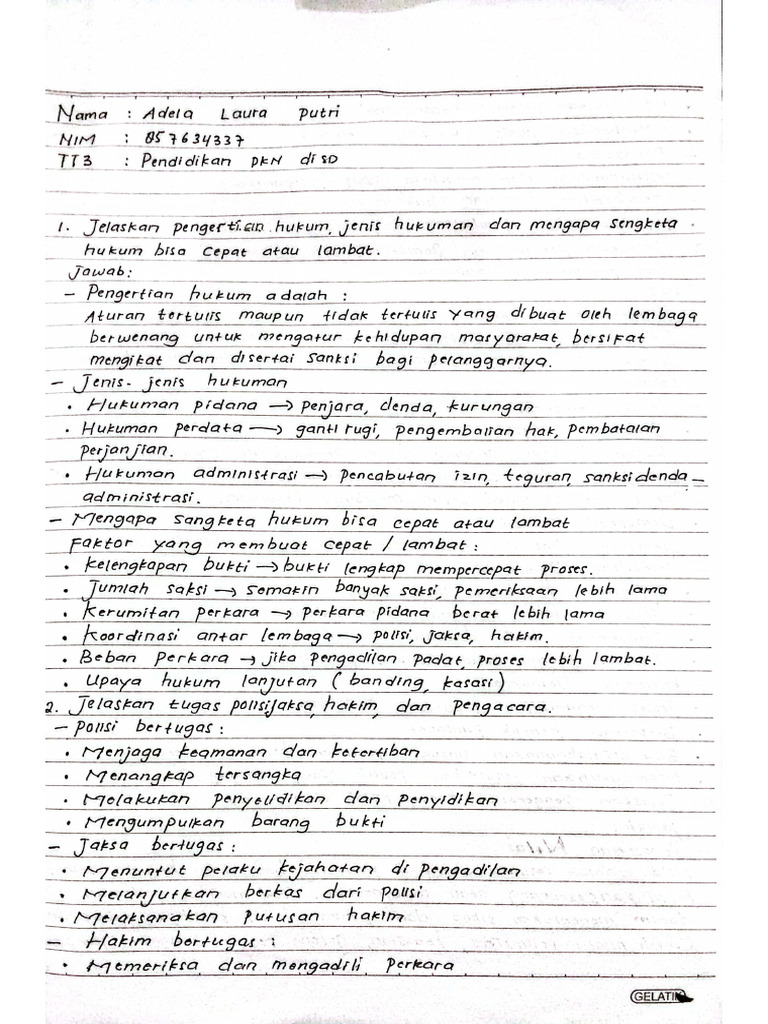 Nama : Adela Laura Putri
NIM : 857634337
TT3 : Pendidikan PKN di SD
1. Jelaskan pengertian hukum, jenis hukuman dan mengapa sengketa
hukum bisa cepat atau lambat.
Jawab:
- Pengertian hukum adalah :
Aturan tertulis maupun tidak tertulis yang dibuat oleh lembaga
berwenang untuk mengatur kehidupan masyarakat, bersifat
mengikat dan disertai sanksi bagi pelanggarnya.
- Jenis-jenis hukuman
• Hukuman pidana → penjara, denda, kurungan
• Hukuman perdata → ganti rugi, pengembalian hak, pembatalan
perjanjian.
• Hukuman administrasi → pencabutan izin, teguran, sanksi denda
administrasi.
- Mengapa sangketa hukum bisa cepat atau lambat
Faktor yang membuat cepat / lambat :
• Kelengkapan bukti → bukti lengkap mempercepat proses.
• Jumlah saksi → semakin banyak saksi, pemeriksaan lebih lama
• Kerumitan perkara → perkara pidana berat lebih lama
• Koordinasi antar lembaga → polisi, jaksa, hakim.
• Beban perkara → jika pengadilan padat, proses lebih lambat.
• Upaya hukum lanjutan (banding, kasasi)
2. Jelaskan tugas polisi, jaksa, hakim, dan pengacara.
- Polisi bertugas :
• Menjaga keamanan dan ketertiban
• Menangkap tersangka
• Melakukan penyelidikan dan penyidikan
• Mengumpulkan barang bukti
- Jaksa bertugas :
• Menuntut pelaku kejahatan di pengadilan
• Melanjutkan berkas dari polisi
• Melaksanakan putusan hakim
- Hakim bertugas :
• Memeriksa dan mengadili perkara
GELATIK